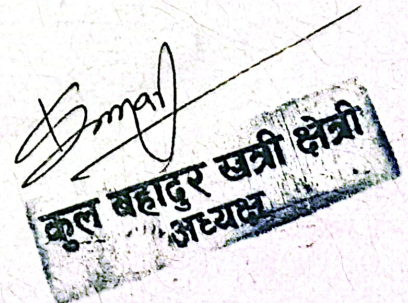 कुल बहादुर खत्री क्षेत्री
अध्यक्ष